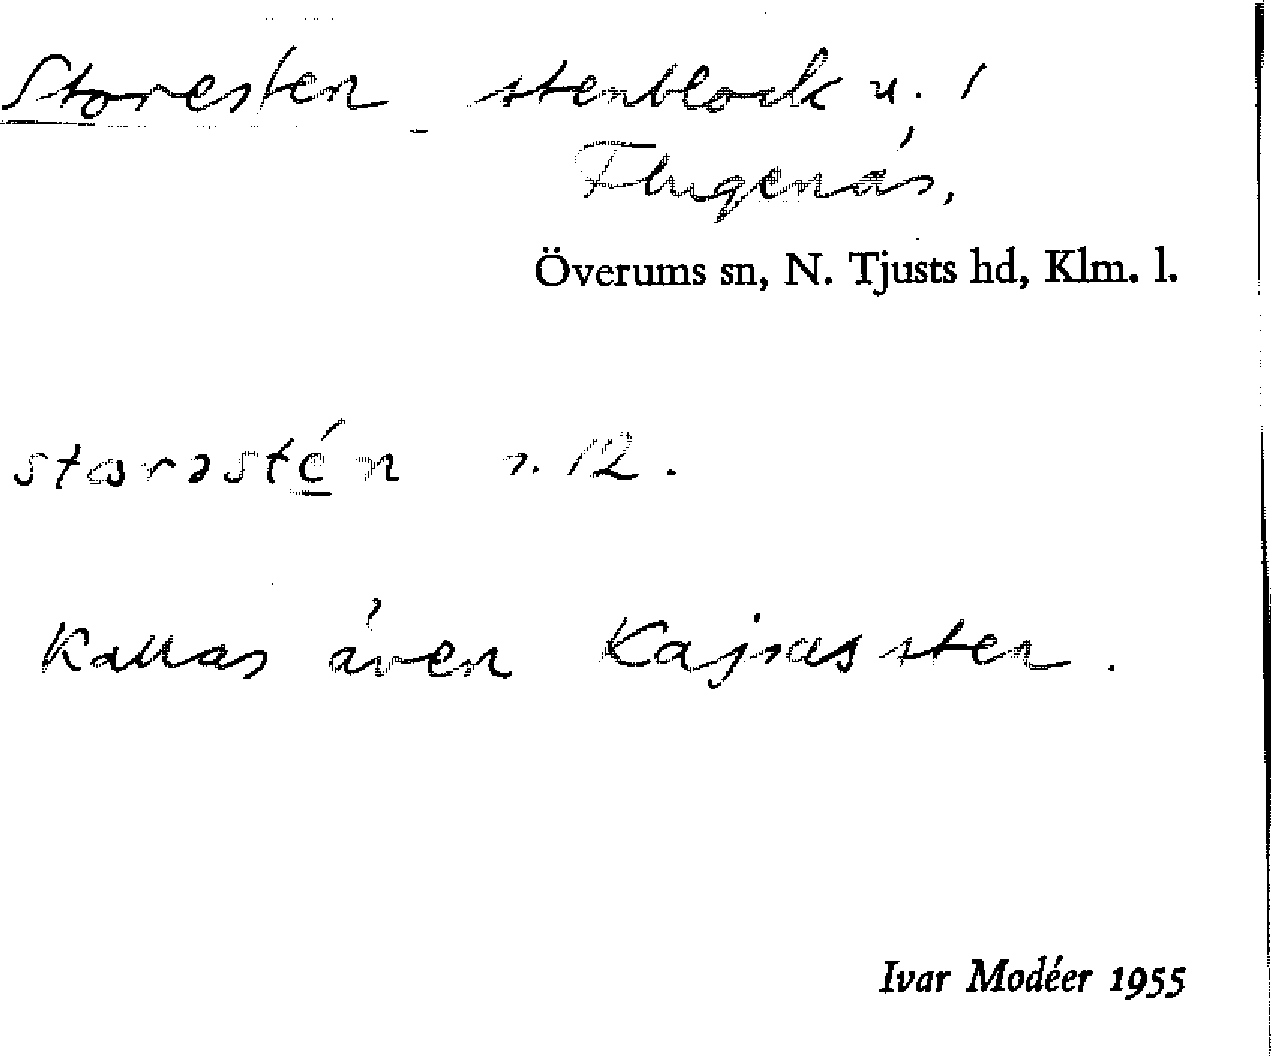 Storesten stenblock u. 1
Flugenäs,
Överums sn, N. Tjusts hd, Klm. l.
starəstén
Kallas även Kajsas sten.
Ivar Modéer 1955